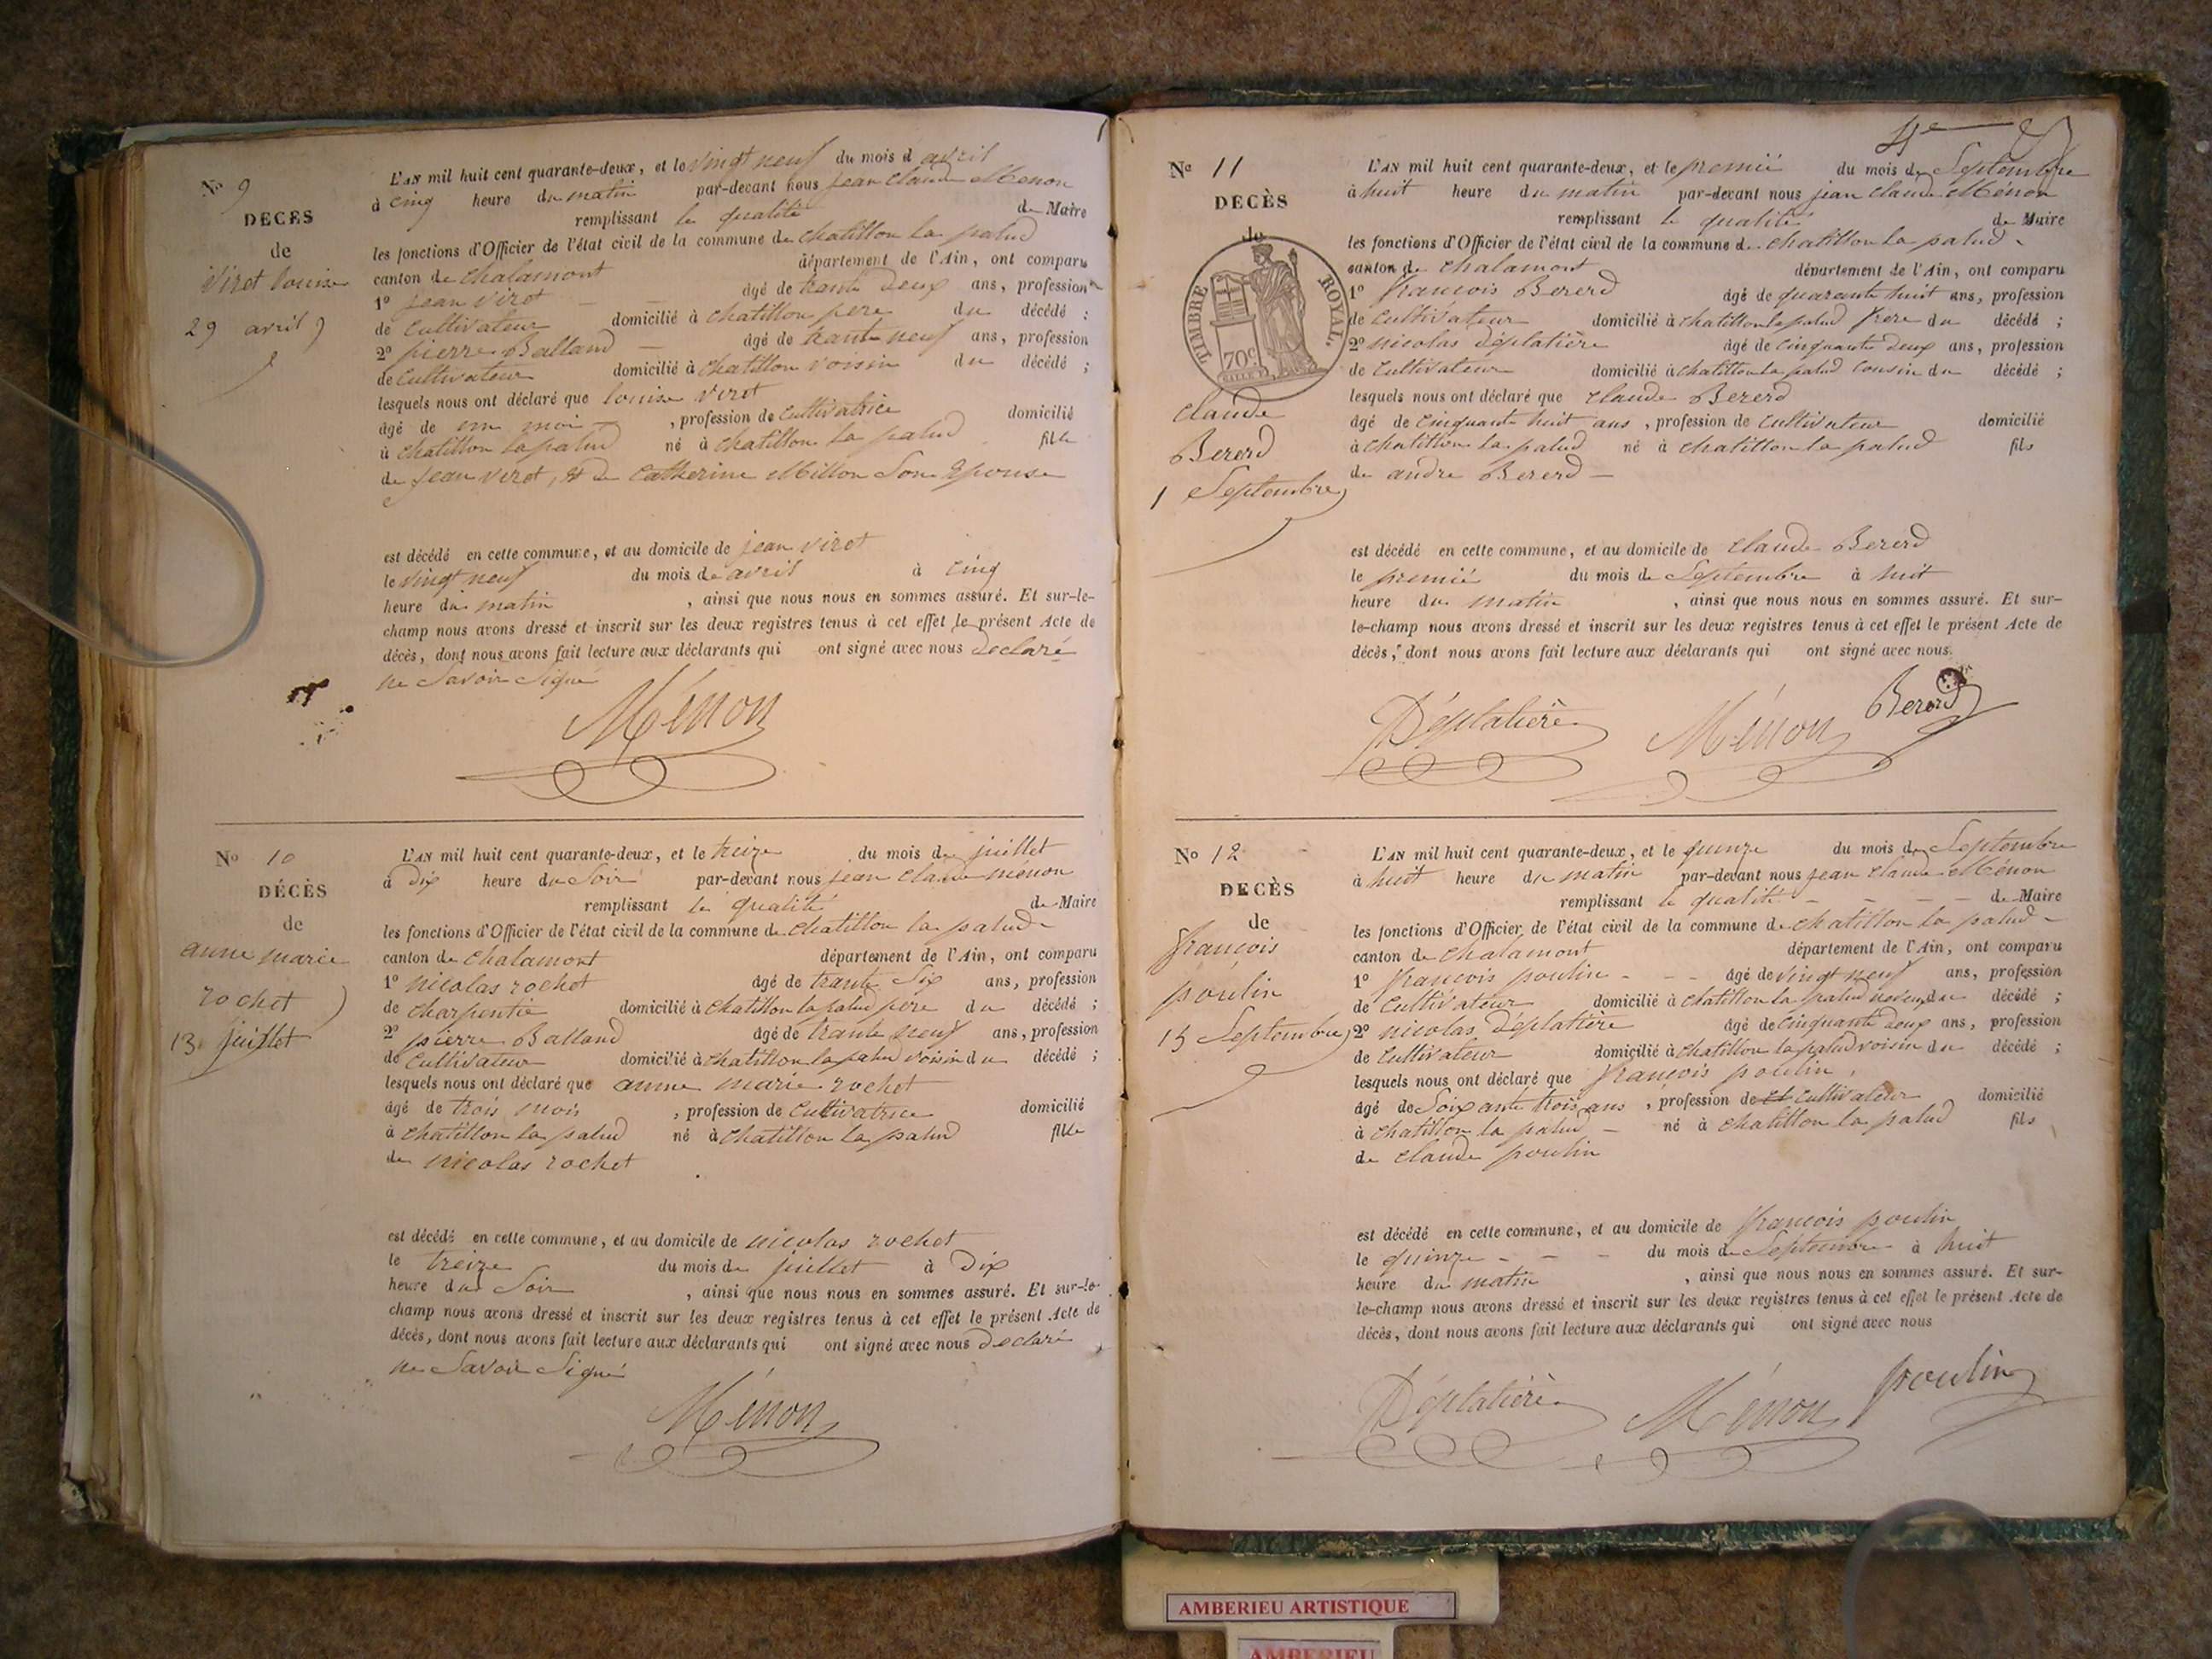 No 9
DECES
de
Viret louise
29 avril
L'AN mil huit cent quarante-deux, et le vingt neuf du mois d avril
à cinq heure du matin par-devant nous jean claude Ménon
remplissant la qualité de Maire
les fonctions d'Officier de l'état civil de la commune de chatillon la palud
canton de chalamont département de l'Ain, ont comparu
1° jean viret âgé de trante deux ans, profession
de Cultivateur domicilié à chatillon pere du décédé ;
2° pierre Balland âgé de trante neuf ans, profession
de Cultivateur domicilié à chatillon voisin du décédé ;
lesquels nous ont déclaré que louise viret
âgé de un moi , profession de Cultivatrice domicilié
à chatillon la palud né à chatillon la palud fille
de jean viret, et de Catherine Millon Son Epouse
est décédé en cette commune, et au domicile de jean viret
le vingt neuf du mois de avril à cinq
heure du matin , ainsi que nous nous en sommes assuré. Et sur-le-
champ nous avons dressé et inscrit sur les deux registres tenus à cet effet le présent Acte de
décès, dont nous avons fait lecture aux déclarants qui ont signé avec nous declaré
ne Savoir Signé
Ménon
No 10
DÉCÈS
de
anne marie
rochet
13 juillet
L'AN mil huit cent quarante-deux, et le treize du mois de juillet
à Dix heure du Soir par-devant nous jean claude ménon
remplissant la qualité de Maire
les fonctions d'Officier de l'état civil de la commune de chatillon la palud
canton de Chalamont département de l'Ain, ont comparu
1° nicolas rochet âgé de trante Six ans, profession
de charpentié domicilié à chatillon la palud pere du décédé ;
2° pierre Balland âgé de trante neuf ans, profession
de Cultivateur domicilié à chatillon la palud voisin du décédé ;
lesquels nous ont déclaré que anne marie rochet
âgé de trois mois , profession de Cultivatrice domicilié
à chatillon la palud né à chatillon la palud fille
de nicolas rochet
est décédé en cette commune, et au domicile de nicolas rochet
le treize du mois de juillet à Dix
heure du Soir , ainsi que nous nous en sommes assuré. Et sur-le-
champ nous avons dressé et inscrit sur les deux registres tenus à cet effet le présent Acte de
décès, dont nous avons fait lecture aux déclarants qui ont signé avec nous Declaré
ne Savoir Signé
Ménon
No 11
DECÈS
de
TIMBRE ROYAL.
70c
claude
Bererd
1 Septembre
L'AN mil huit cent quarante-deux, et le premié du mois de Septembre
à huit heure du matin par-devant nous jean claude Ménon
remplissant la qualité de Maire
les fonctions d'Officier de l'état civil de la commune de chatillon la palud
canton de chalamont département de l'Ain, ont comparu
1° francois Bererd âgé de quarante huit ans, profession
de Cultivateur domicilié à chatillon la palud frere du décédé ;
2° nicolas Déplatière âgé de cinquante deux ans, profession
de Cultivateur domicilié à chatillon la palud Cousin du décédé ;
lesquels nous ont déclaré que claude Bererd
âgé de Cinquante huit ans , profession de cultivateur domicilié
à chatillon la palud né à chatillon la palud fils
de andre Bererd
est décédé en cette commune, et au domicile de claude Bererd
le premié du mois de Septembre à huit
heure du matin , ainsi que nous nous en sommes assuré. Et sur-
le-champ nous avons dressé et inscrit sur les deux registres tenus à cet effet le présent Acte de
décès, dont nous avons fait lecture aux déclarants qui ont signé avec nous.
Déplatière Ménon Bererd
No 12
DECÈS
de
francois
poulin
15 Septembre
L'AN mil huit cent quarante-deux, et le quinze du mois de Septembre
à huit heure du matin par-devant nous jean claude Ménon
remplissant la qualité de Maire
les fonctions d'Officier de l'état civil de la commune de chatillon la palud
canton de chalamont département de l'Ain, ont comparu
1° francois poulin âgé de vingt neuf ans, profession
de Cultivateur domicilié à chatillon la palud neveu du décédé ;
2° nicolas Déplatière âgé de Cinquante deux ans, profession
de Cultivateur domicilié à chatillon la palud voisin du décédé ;
lesquels nous ont déclaré que francois poulin
âgé de Soixante trois ans , profession de cultivateur domicilié
à chatillon la palud né à chatillon la palud fils
de claude poulin
est décédé en cette commune, et au domicile de francois poulin
le quinze du mois de Septembre à huit
heure du matin , ainsi que nous nous en sommes assuré. Et sur-
le-champ nous avons dressé et inscrit sur les deux registres tenus à cet effet le présent Acte de
décès, dont nous avons fait lecture aux déclarants qui ont signé avec nous
Déplatière Ménon poulin
AMBERIEU ARTISTIQUE
AMBERIEU